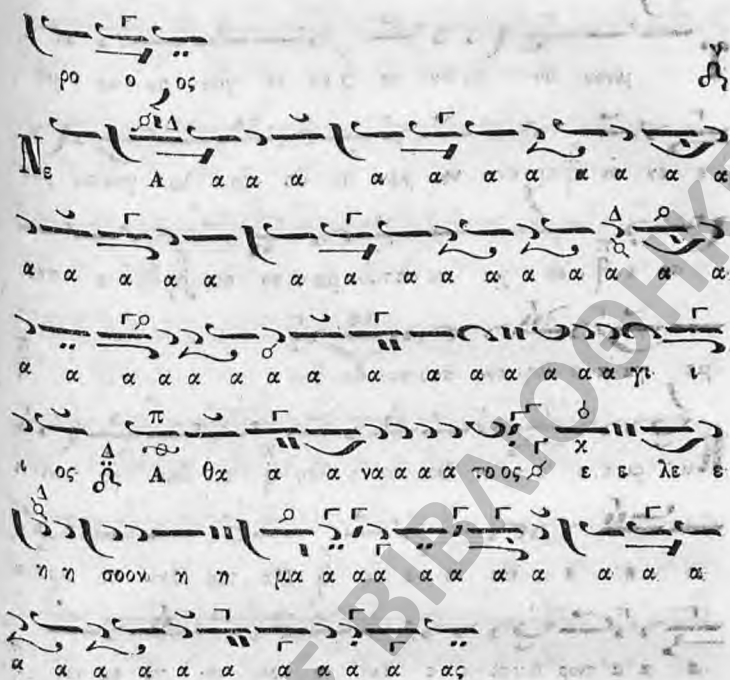 ρο ο ος
Νε Α α α α α α α α α α α α
α α α α α α α α α α α α α α
α α α α α α α α α α α α α α α γι ι
ι ος Α θα α α να α α α το ος ε ε λε ε
η η σοον η η μα α α α α α α α α α α
α α α α α α α α α α ας
ΒΙΒΛΙΟΘΗΚ